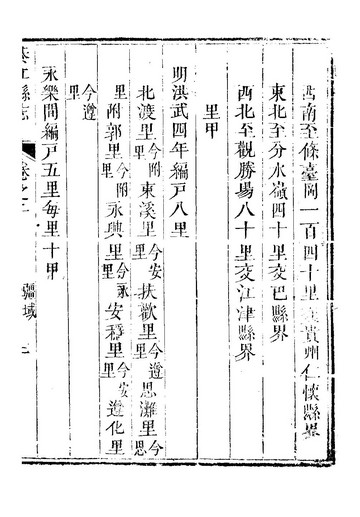 西南至條臺岡一百四十里交貴州仁懷縣界
東北至分水嶺四十里交巴縣界
西北至觀勝場八十里交江津縣界
里甲
明洪武四年編戶八里
北渡里今附里東溪里今安里扶歡里今遵里思灘里今思
里附郭里今附里永興里今永里安穩里今安里遵化里
今遵里
永樂間編戶五里每里十甲
綦江縣志 卷之二 疆域 二